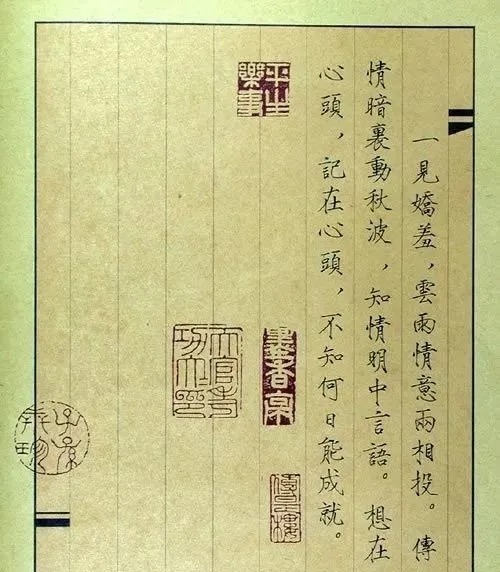 一見嬌羞，雲雨情意兩相投。傳
情暗裏動秋波，知情明中言語。想在
心頭，記在心頭，不知何日能成就。
平生
樂事
墨香